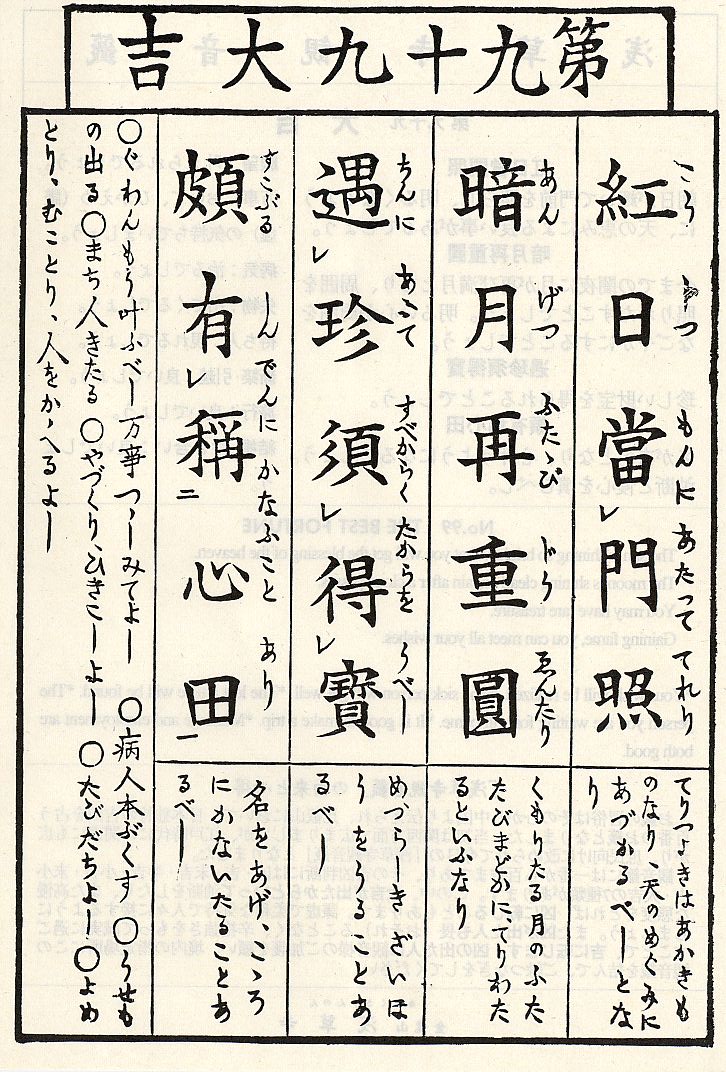 第九十九大吉
こう じつ もんに あたつて てれり
紅日當レ門照
てりつよきはあかきも
のなり、天のめぐみに
あづかるべしとな
り
あん げつ ふたゝび ぢう ゑんたり
暗月再重圓
くもりたる月のふた
たびまどかに、てりわた
るといふなり
ちんに あふて すべからく たからを うべし
遇レ珍須レ得レ寳
めづらしきざいほ
うをうることあ
るべし
すこぶる しんでんに かなふこと あり
頗有レ稱二心田一
名をあげ、こゝろ
にかないたることあ
るべし
○ぐわんもう叶ふべし万事つゝしみてよし ○病人本ぶくす○うせも
の出る○まち人きたる ○やづくり、ひきこしよし ○たびだちよし○よめ
とり、むことり、人をかゝへるよし